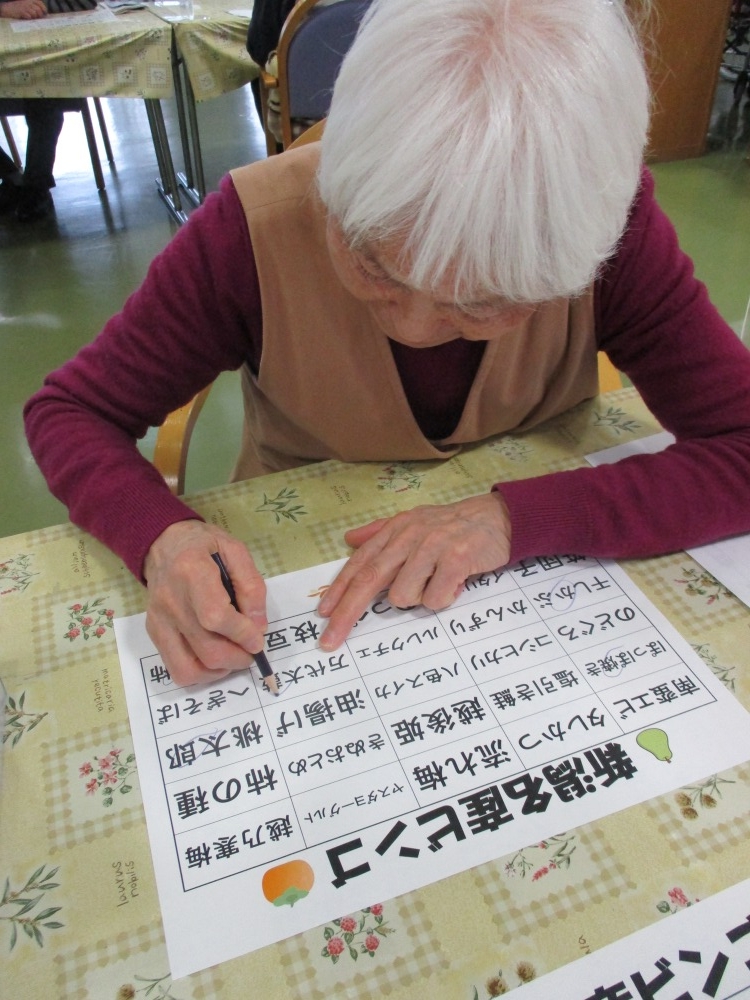 新潟名産ビンゴ
南蛮エビ タレかつ 流れ梅 ヤスダヨーグルト 越乃寒梅
ぽっぽ焼き 塩引き鮭 越後姫 きぬおとめ 柿の種
のどぐろ コシヒカリ 八色スイカ 油揚げ 桃太郎
干しかぶ かんずり ルレクチェ 万代太 へぎそば
笹団子 イタリ 枝豆 柿
laurus
nobilis